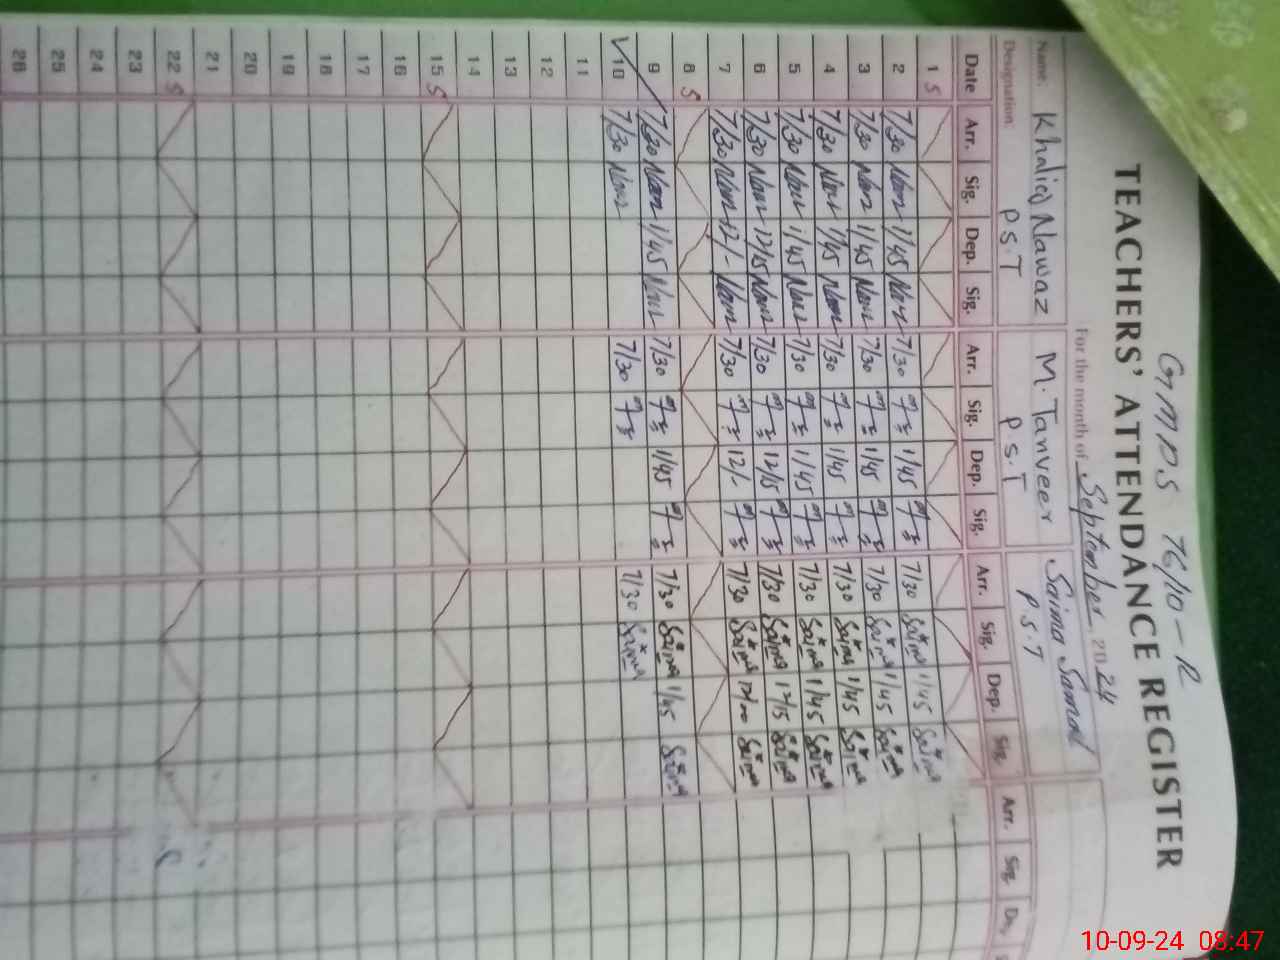 GMPS 76/10-R
TEACHERS' ATTENDANCE REGISTER
For the month of September 2024
Name: Khalid Nawaz M. Tanveer Saima Samad
Designation: P.S.T P.S.T P.S.T
Date Arr. Sig. Dep. Sig. Arr. Sig. Dep. Sig. Arr. Sig. Dep. Sig. Arr. Sig. De
1 S
2 7/30 Nawz 1/45 Nawz 7/30 1/45 7/30 Saima 1/45 Saima
3 7/30 Nawz 1/45 Nawz 7/30 1/45 7/30 Saima 1/45 Saima
4 7/30 Nawz 1/45 Nawz 7/30 1/45 7/30 Saima 1/45 Saima
5 7/30 Nawz 1/45 Nawz 7/30 1/45 7/30 Saima 1/45 Saima
6 7/30 Nawz 12/15 Nawz 7/30 12/15 7/30 Saima 12/15 Saima
7 7/30 Nawz 12/- Nawz 7/30 12/- 7/30 Saima 12/00 Saima
8 S
9 7/30 Nawz 1/45 Nawz 7/30 1/45 7/30 Saima 1/45 Saima
10 7/30 Nawz 7/30 7/30 Saima
11
12
13
14
15 S
16
17
18
19
20
21
22 S
23
24
25
26
10-09-24 08:47